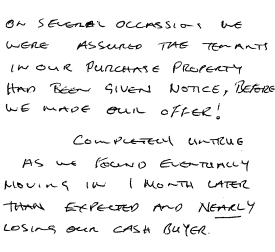 ON SEVERAL OCCASSIONS WE
WERE ASSURED THE TENANTS
IN OUR PURCHASE PROPERTY
HAD BEEN GIVEN NOTICE, BEFORE
WE MADE OUR OFFER!
COMPLETELY UNTRUE
AS WE FOUND EVENTUALLY
MOVING IN 1 MONTH LATER
THAN EXPECTED AND NEARLY
LOSING OUR CASH BUYER.